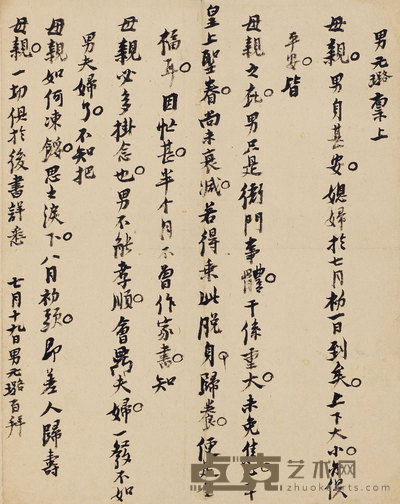 男元璐稟上
母親。男自甚安。媳婦於七月初一日到矣。上下大小俱
平安。皆
母親之庇。男只是衙門事體。干係重大。未免
皇上聖眷。尚未衰減。若得乘此脫身歸養。便是
福耳。因忙甚。半个月不曾作家書。知
母親必多掛念也。男不能孝順。會鼎夫婦一發不如
男夫婦了。不知把
母親如何凍餒。思之淚下。八月初頭。即差人歸壽
母親。一切俱於後書詳悉 七月十九日男元璐百拜
卓克艺术网
www.zhuokearts.com